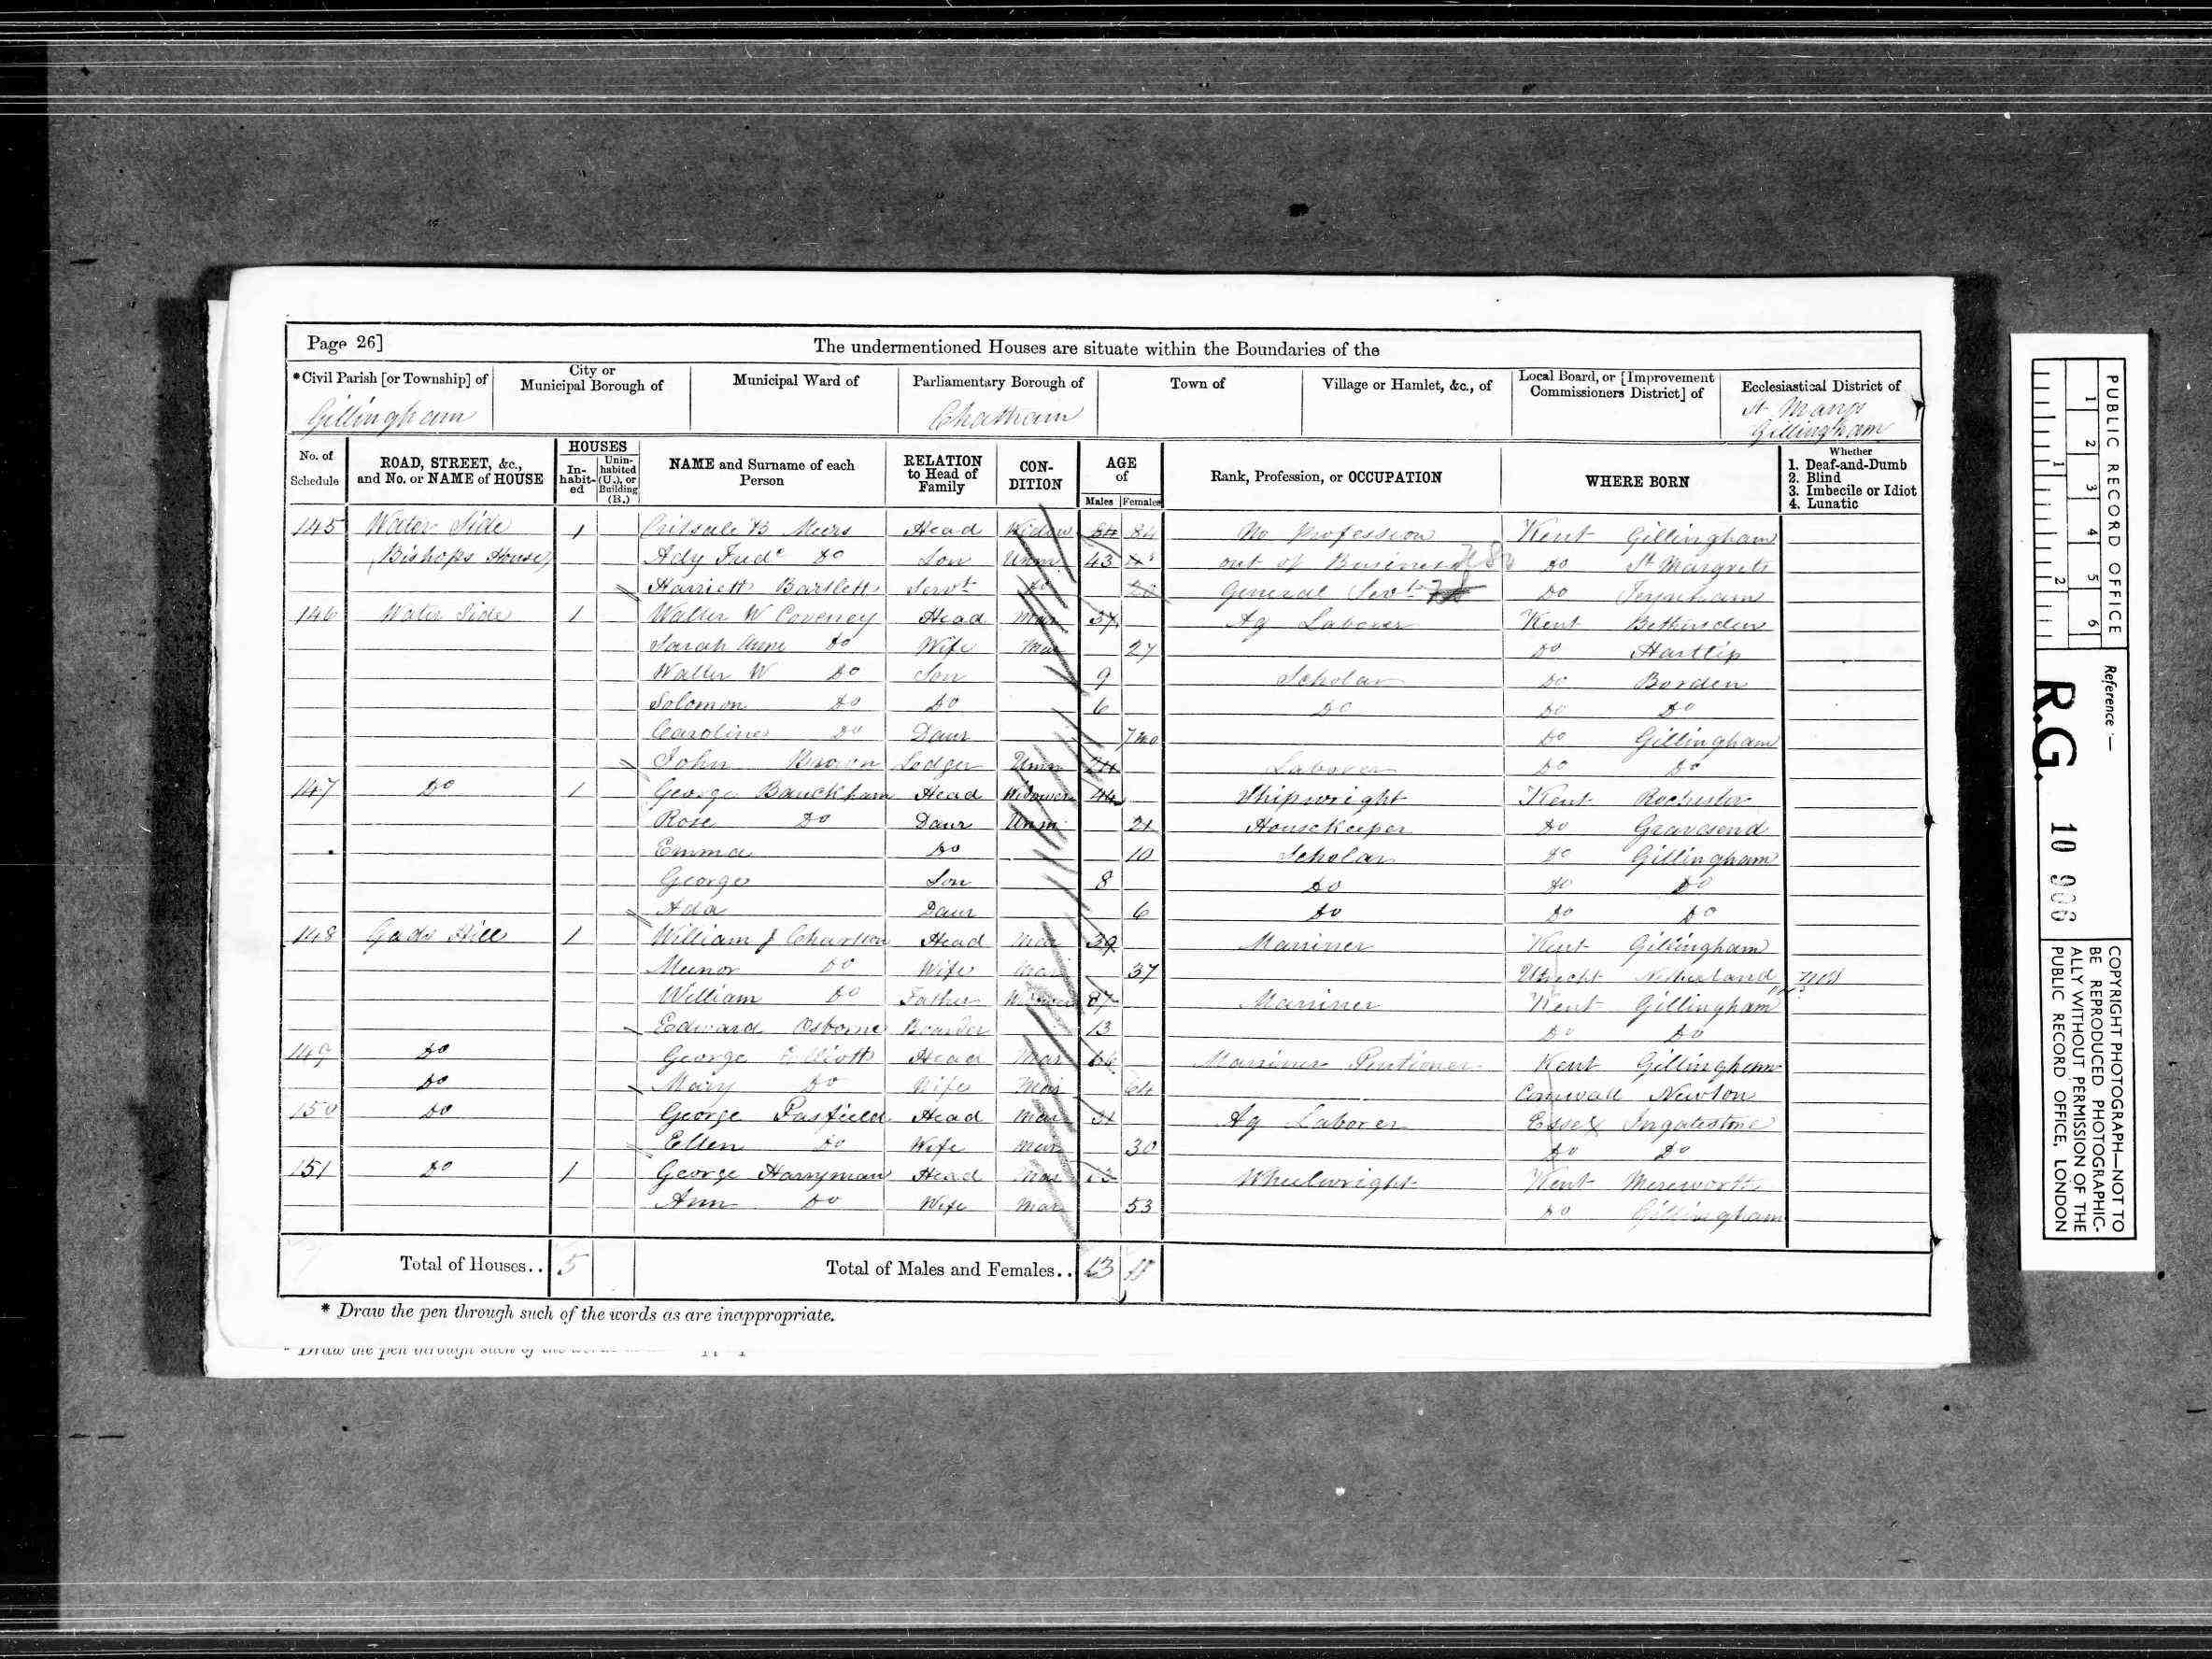 Page 26]
The undermentioned Houses are situate within the Boundaries of the
*Civil Parish [or Township] of
City or Municipal Borough of
Municipal Ward of
Parliamentary Borough of
Town of
Village or Hamlet, &c., of
Local Board, or [Improvement Commissioners District] of
Ecclesiastical District of
Gillingham
Chatham
St Marys
Gillingham
No. of Schedule
ROAD, STREET, &c., and No. or NAME of HOUSE
HOUSES
In-habit-ed
Unin-habited (U.), or Building (B.)
NAME and Surname of each Person
RELATION to Head of Family
CON-DITION
AGE of
Males Females
Rank, Profession, or OCCUPATION
WHERE BORN
Whether
1. Deaf-and-Dumb
2. Blind
3. Imbecile or Idiot
4. Lunatic
145 Water Side 1 B Meers Head Widow 84 84 No Profession Kent Gillingham
Bishops House Ady Do Son Unm 43 out of Business Do St Margrets
Harriett Bartlett Servt Do 20 General Servt Do
146 Water Side 1 Walter W Coveney Head Mar 37 Ag Laborer Kent Bethersden
Sarah Anne Do Wife Mar 27 Do Hartlip
Walter W Do Son 9 Scholar Do Borden
Solomon Do Do 6 Do Do Do
Caroline Do Daur 7 mo Do Gillingham
John Brown Lodger Unm Laborer Do Do
147 Do 1 George Bauckham Head Widower 44 Shipwright Kent Rochester
Rose Do Daur Unm 21 Housekeeper Do Gravesend
Emma Do 10 Scholar Do Gillingham
George Son 8 Do Do Do
Ada Daur 6 Do Do Do
148 Gads Hill 1 William J Charlton Head Mar 39 Marriner Kent Gillingham
Do Wife Mar 37 Utrecht Netherland
William Do Father Widower 87 Marriner Kent Gillingham
Edward Osborne Boarder 13 Do Do
149 Do George Elliott Head Mar 66 Marriner Pentioner Kent Gillingham
Do Mary Do Wife Mar 64 Cornwall Newton
150 Do George Pasfield Head Mar 31 Ag Laborer Essex Ingatestone
Ellen Do Wife Mar 30 Do Do
151 Do 1 George Harryman Head Mar Wheelwright Kent Mereworth
Ann Do Wife Mar 53 Do Gillingham
Total of Houses.. 5
Total of Males and Females.. 13 11
* Draw the pen through such of the words as are inappropriate.
PUBLIC RECORD OFFICE
1 2 3 4 5 6
1 2
Reference :—
R.G. 10 906
COPYRIGHT PHOTOGRAPH—NOT TO
BE REPRODUCED PHOTOGRAPHIC-
ALLY WITHOUT PERMISSION OF THE
PUBLIC RECORD OFFICE, LONDON